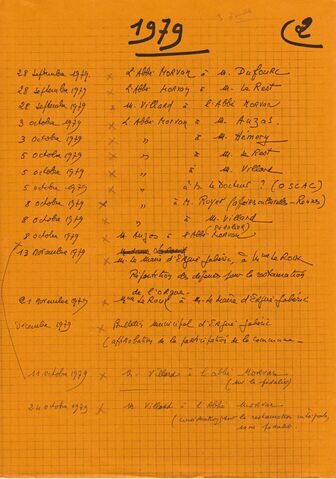 1979
2
28 Septembre 1979. x L'Abbé MORVAN à M. Dufourc
28 Septembre 1979 x L'Abbé Morvan à M. Le Rest
28 Septembre 1979 x M. Villard à l'Abbé MORVAN
3 Octobre 1979 x L'Abbé MORVAN à M. Auzas
3 Octobre 1979 x " à M. Hémery
5 Octobre 1979 x " à M. Le Rest
5 Octobre 1979 x " à M. Villard
5 octobre 1979 " à le Docteur ? (OSCAC)
8 octobre 1979 x " à M. Royer (affaires culturelles - Rennes)
8 octobre 1979 x " à M. Villard
8 octobre 1979 x M. Auzas à l'Abbé MORVAN
13 Novembre 1979 x
M. le Maire d'Ergué-Gabéric à Mme Le Roux
Répartition des dépenses pour la restauration
de l'orgue.
21 Novembre 1979 x Mme Le Roux à M. le Maire d'Ergué-Gabéric
Décembre 1979 x Bulletin municipal d'Ergué-Gabéric
(approbation de la participation de la commune
11 octobre 1979 x M. Villard à l'abbé MORVAN
(sur le pédalier)
24 octobre 1979 x M. Villard à l'Abbé MORVAN
(considérations sur la restauration
sans pédalier